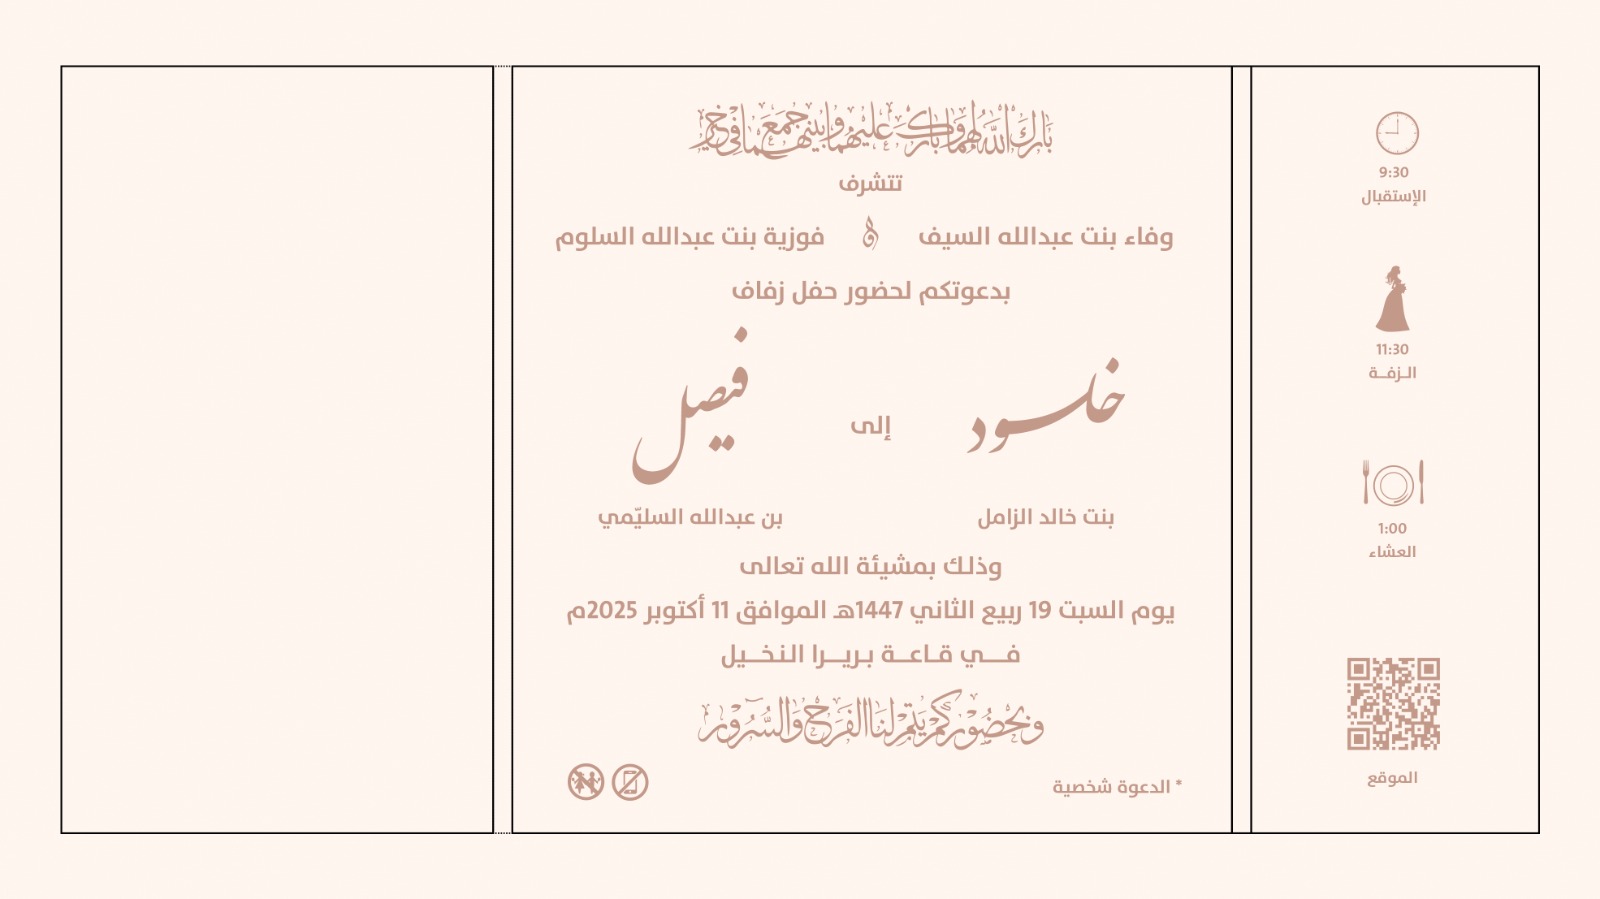 بَارَكَ اللَّه لهما وَبَارَكَ عليهما وجمع بينهما في خير
تتشرف
وفاء بنت عبدالله السيف و فوزية بنت عبدالله السلوم
بدعوتكم لحضور حفل زفاف
خلـــود إلى فيصل
بنت خالد الزامل بن عبدالله السليّمي
وذلك بمشيئة الله تعالى
يوم السبت 19 ربيع الثاني 1447هـ الموافق 11 أكتوبر 2025م
فـــي قـاعــة بـريــرا النـخــيل
وبحضوركم يتم لنا الفرح والسرور
* الدعوة شخصية
9:30
الإستقبال
11:30
الـزفــة
1:00
العشاء
الموقع